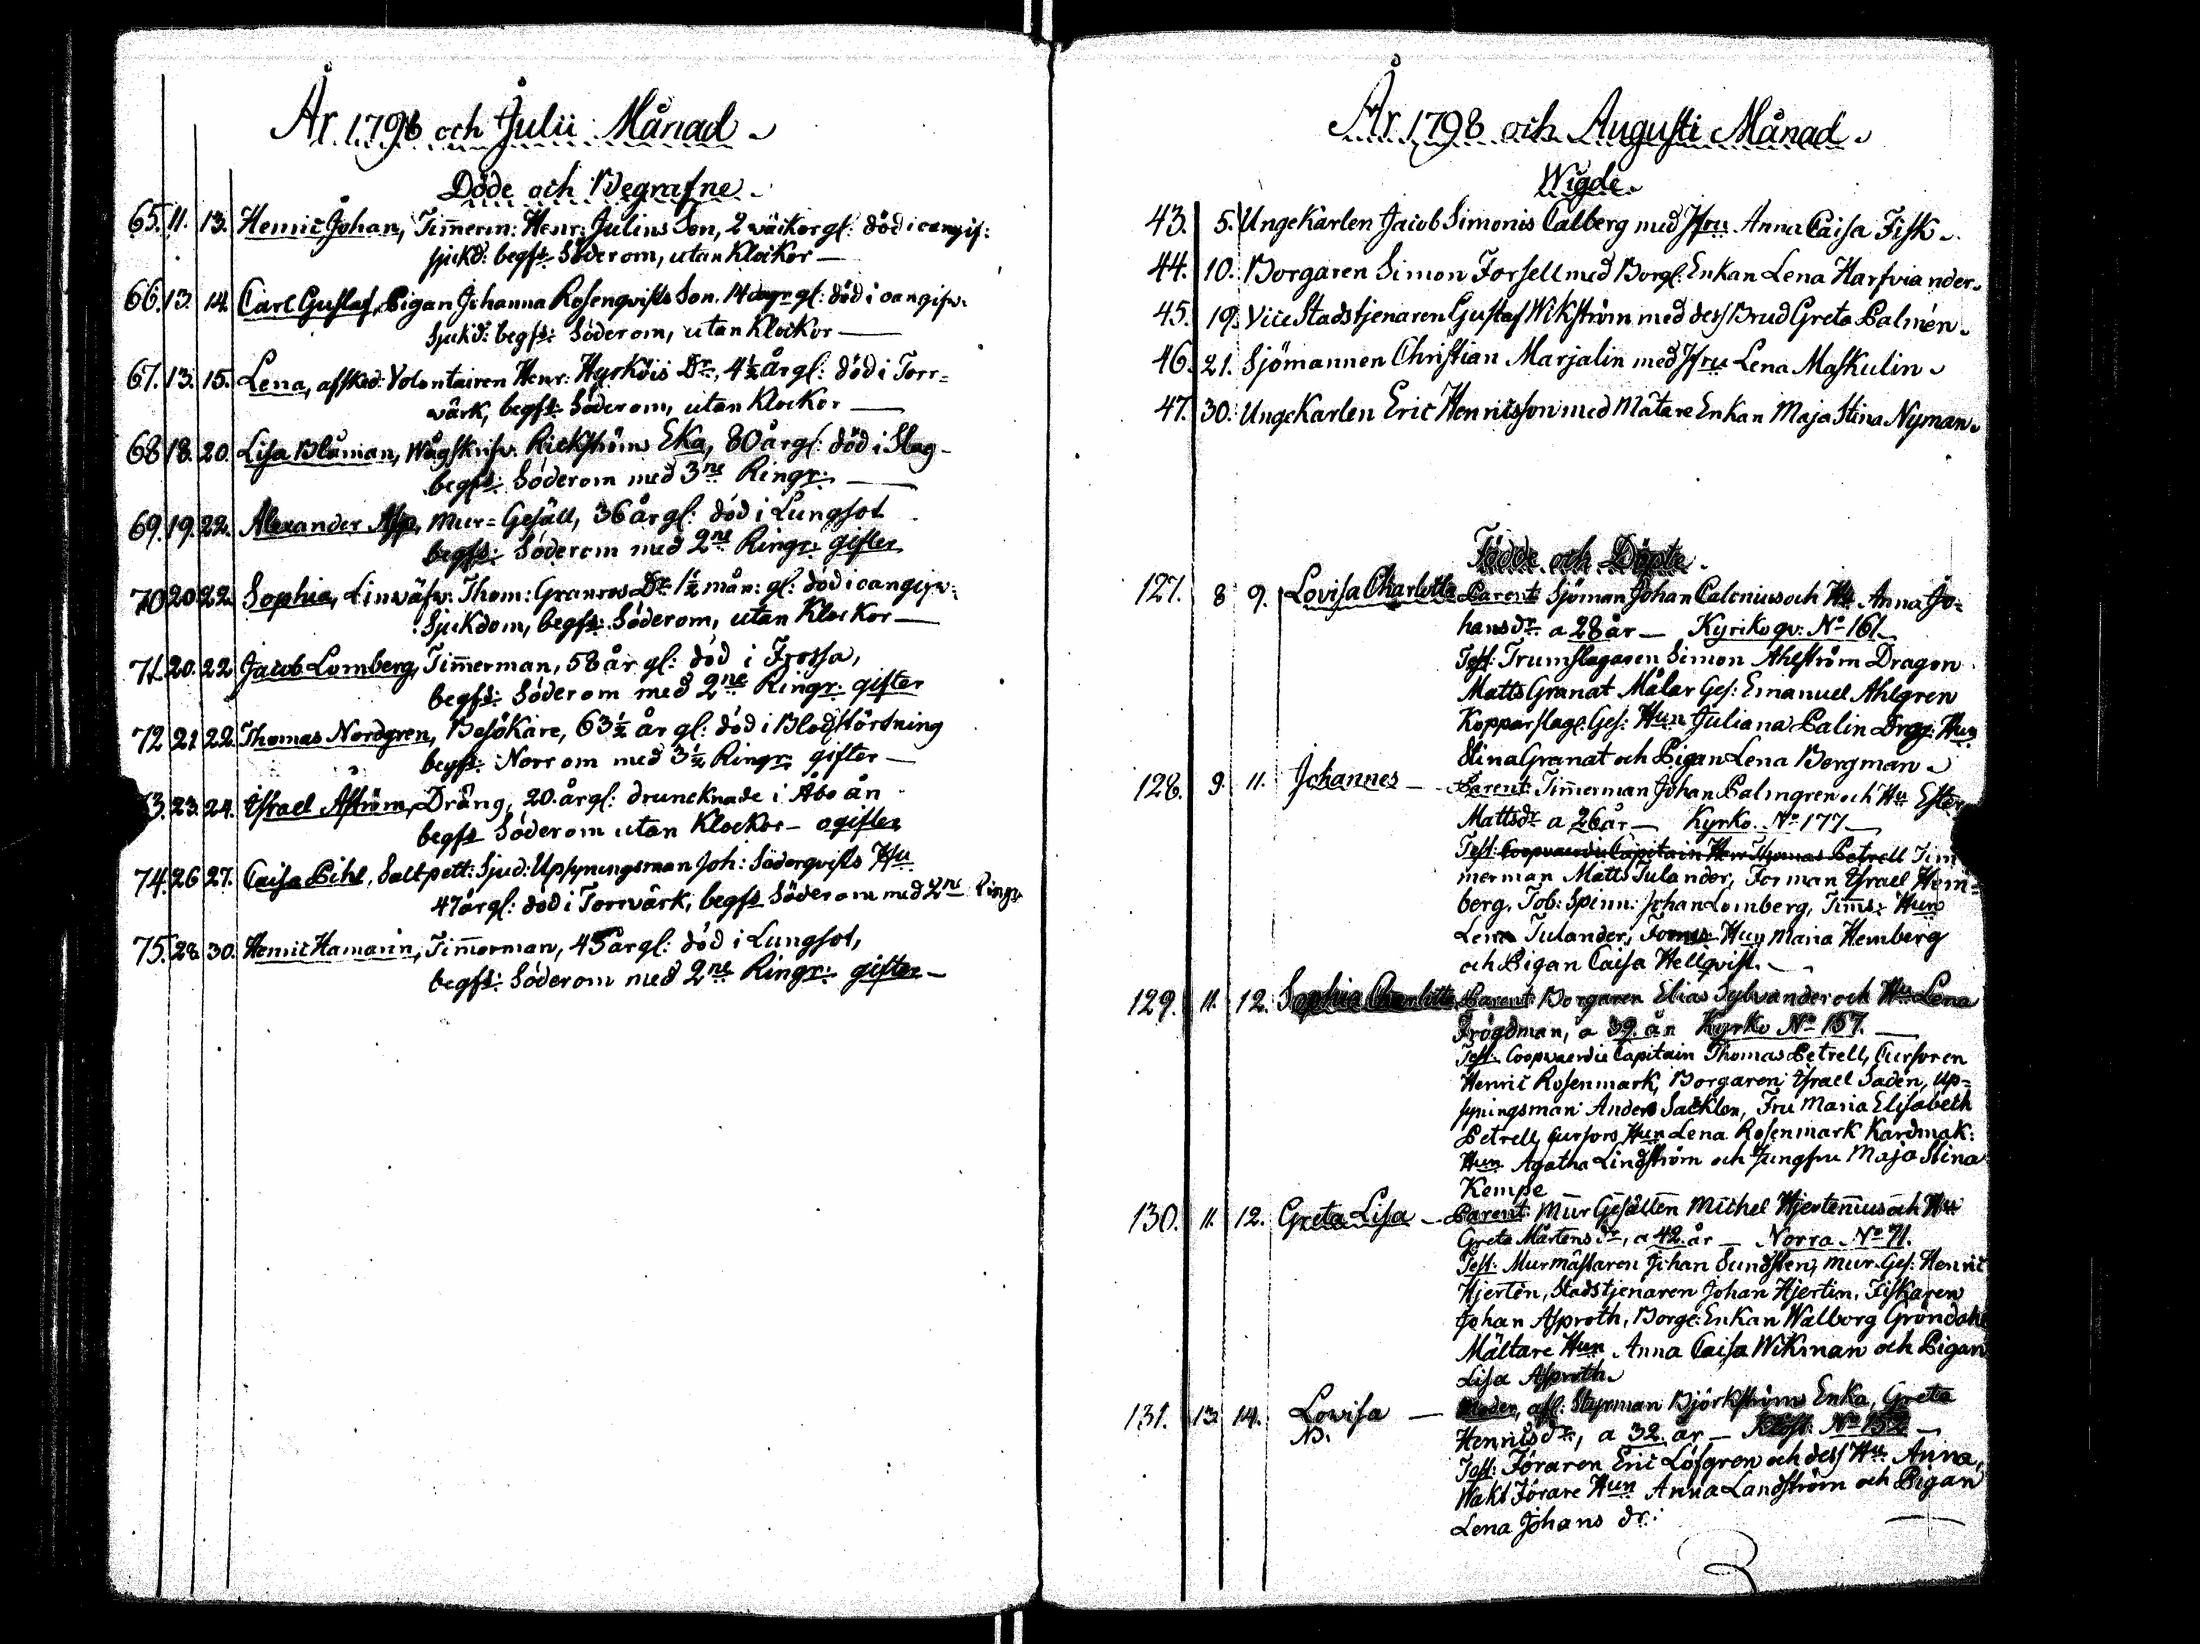 År 1798 och Julii Månad
Döde och Begrafne
65. 11. 13. Henric Johan, Timerm: Henr: Julins Son, 2 wäckor gl: död i oangif:
sjukd: begfs Söder om, utan Klockor —
66. 13. 14. Carl Gustaf, Pigan Johanna Rosenqvists Son. 14 dagr gl: död i oangifv:
Sjukd: begfs: Söder om, utan Klockor —
67. 13. 15. Lena, afsked: Volontairen Henr: Hyrköis Dr, 4½ år gl: död i Torr=
wärk, begfs: Söder om, utan Klockor —
68 18. 20. Lisa Blåman, Wågskrifv: Rickströms Eka, 80 år gl: död i Slag-
begfs: Söder om med 3ne Ringr: —
69. 19. 22. Alexander Asp, Mur=Gesäll, 36 år gl: död i Lungsot
begfs: Söder om med 2ne Ringr: gifter
70 20 22. Sophia, Linwäfv: Thom: Granroos Dr 1½ mån: gl: död i oangifv:
Sjukdom, begfs: Söder om, utan Klockor —
71. 20. 22 Jacob Lomberg, Timerman, 58 år gl: död i Frossa,
begfs: Söder om med 2ne Ringr: gifter
72 21 22. Thomas Nordgren, Besökare, 63½ år gl: död i Blodstörtning
begfs: Norr om med 3½ Ringr: gifter —
3. 23. 24. Israel Åström, Dräng, 20. år gl: druncknade i Åbo ån
begfs Söder om utan Klockor — ogifter
74. 26 27. Caisa Pihl, Saltpett: Sjud: Upsyningsman Joh: Söderqvists Hu
47 år gl: död i Torrwärk, begfs Söder om med 2ne Ringr
75. 28. 30. Henric Hamarin, Timerman, 45 år gl: död i Lungsot,
begfs: Söder om med 2ne Ringr: gifter —
År 1798 och Augusti Månad
Wigde
43. 5. Unge Karlen Jacob Simonis Calberg med Jfru Anna Caisa Fisk
44. 10. Borgaren Simon Forsell med Borgl: Enkan Lena Harfviander
45. 19. Vice Stadstjenaren Gustaf Wikström med dess Brud Greta Palmén
46. 21. Sjömannen Christian Marjalin med Jfru Lena Maskulin
47. 30. Unge Karlen Eric Henricsson med Mätare Enkan Maja Stina Nyman
Födde och Döpte
127. 8 9. Lovisa Charlotta Parent: Sjöman Johan Calenius och Hu Anna Jo=
hans dr a 28 år — Kyriko qv: No 161
Test: Trumslagaren Simon Ahlström Dragon
Matts Granat Målar Ges: Emanuel Ahlgren
Kopparslag: Ges: Hun Juliana Palin Drag: Hun
Stina Granat och Pigan Lena Bergman
128. 9. 11. Johannes — Parent: Timerman Johan Palmgren och Hu Ester
Mattsdr a 26 år — Kyrko No 177 —
Test: Coopvaerdie Capitain Herr Thomas Petrell Tim
merman Matts Tulander, Forman Israel Hem=
berg, Tob: Spinn: Johan Lomberg, Tims: Hun
Lena Tulander, Formes Hun Maria Hemberg
och Pigan Caisa Hellqvist.
129. 11. 12. Sophia Charlotta Parent: Borgaren Elias Sylvander och Hu Lena
Frögdman, a 39. år Kyrko No 157. —
Test: Coopvaerdie Capitain Thomas Petrell, Cursoren
Henric Rosenmark, Borgaren Israel Saden, Up=
syningsman: Anders Sacklen, Fru Maria Elisabeth
Petrell, Cursors Hun Lena Rosenmark Kardmak:
Hun Agatha Lindström och Jungfru Maja Stina
Kempe
130. 11. 12. Greta Lisa — Parent: Mur Gesällen Michel Hjertenius och Hu
Greta Mårtens dr, a 42 år — Norra No 71.
Test: Murmästaren Johan Sundsten, Mur-Ges: Henric
Hjertèn, Stadstjenaren Johan Hjertin, Fiskaren
Johan Asproth, Borge: Enkan Walborg Gröndahl
Mältare Hun Anna Caisa Wikman och Pigan
Lisa Asproth
131. 13. 14. Lowisa — Moder, afl: Styrman Björkströms Enka, Greta
NB. Henricsdr, a 32 år — Klost: No 152 —
Test: Föraren Eric Löfgren och dess Hu Anna,
Wakt Förare Hun Anna Landström och Pigan
Lena Johans dr: